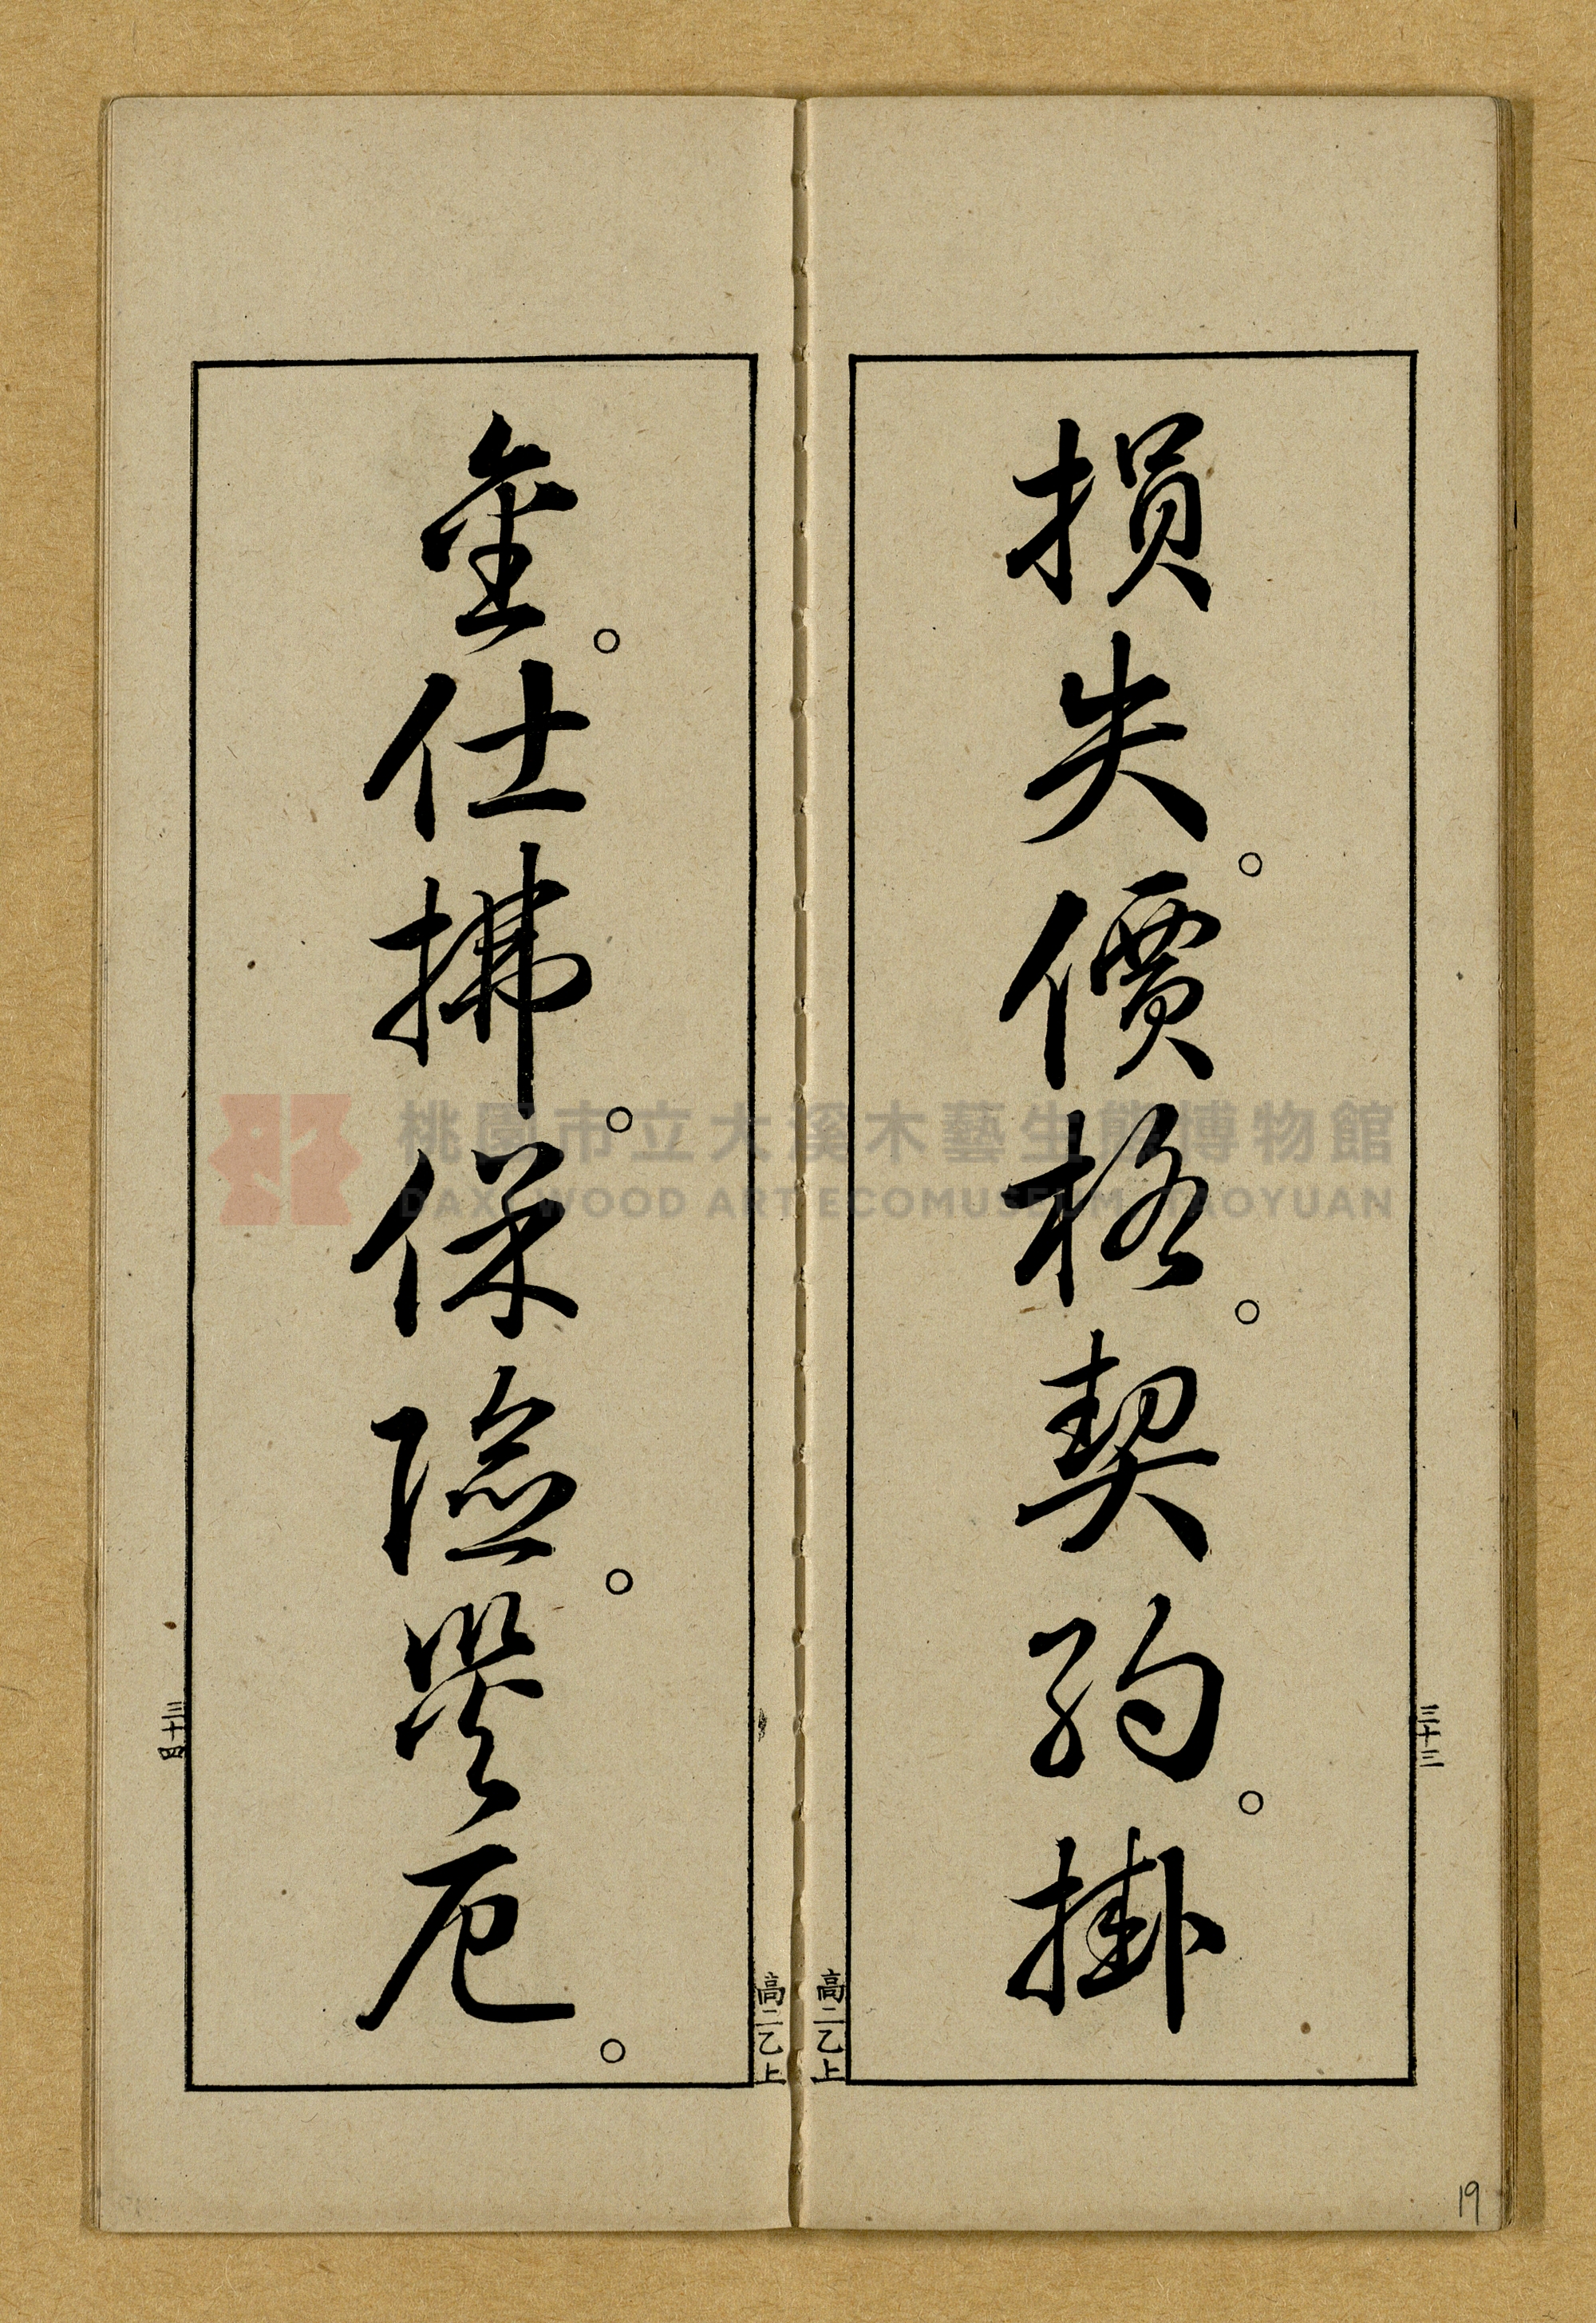 損失。價格。契約。掛
金。仕拂。保險。災厄。
三十三
高二乙上
高二乙上
三十四
桃園市立大溪木藝生態博物館
DAXI WOOD ART ECOMUSEUM, TAOYUAN
19